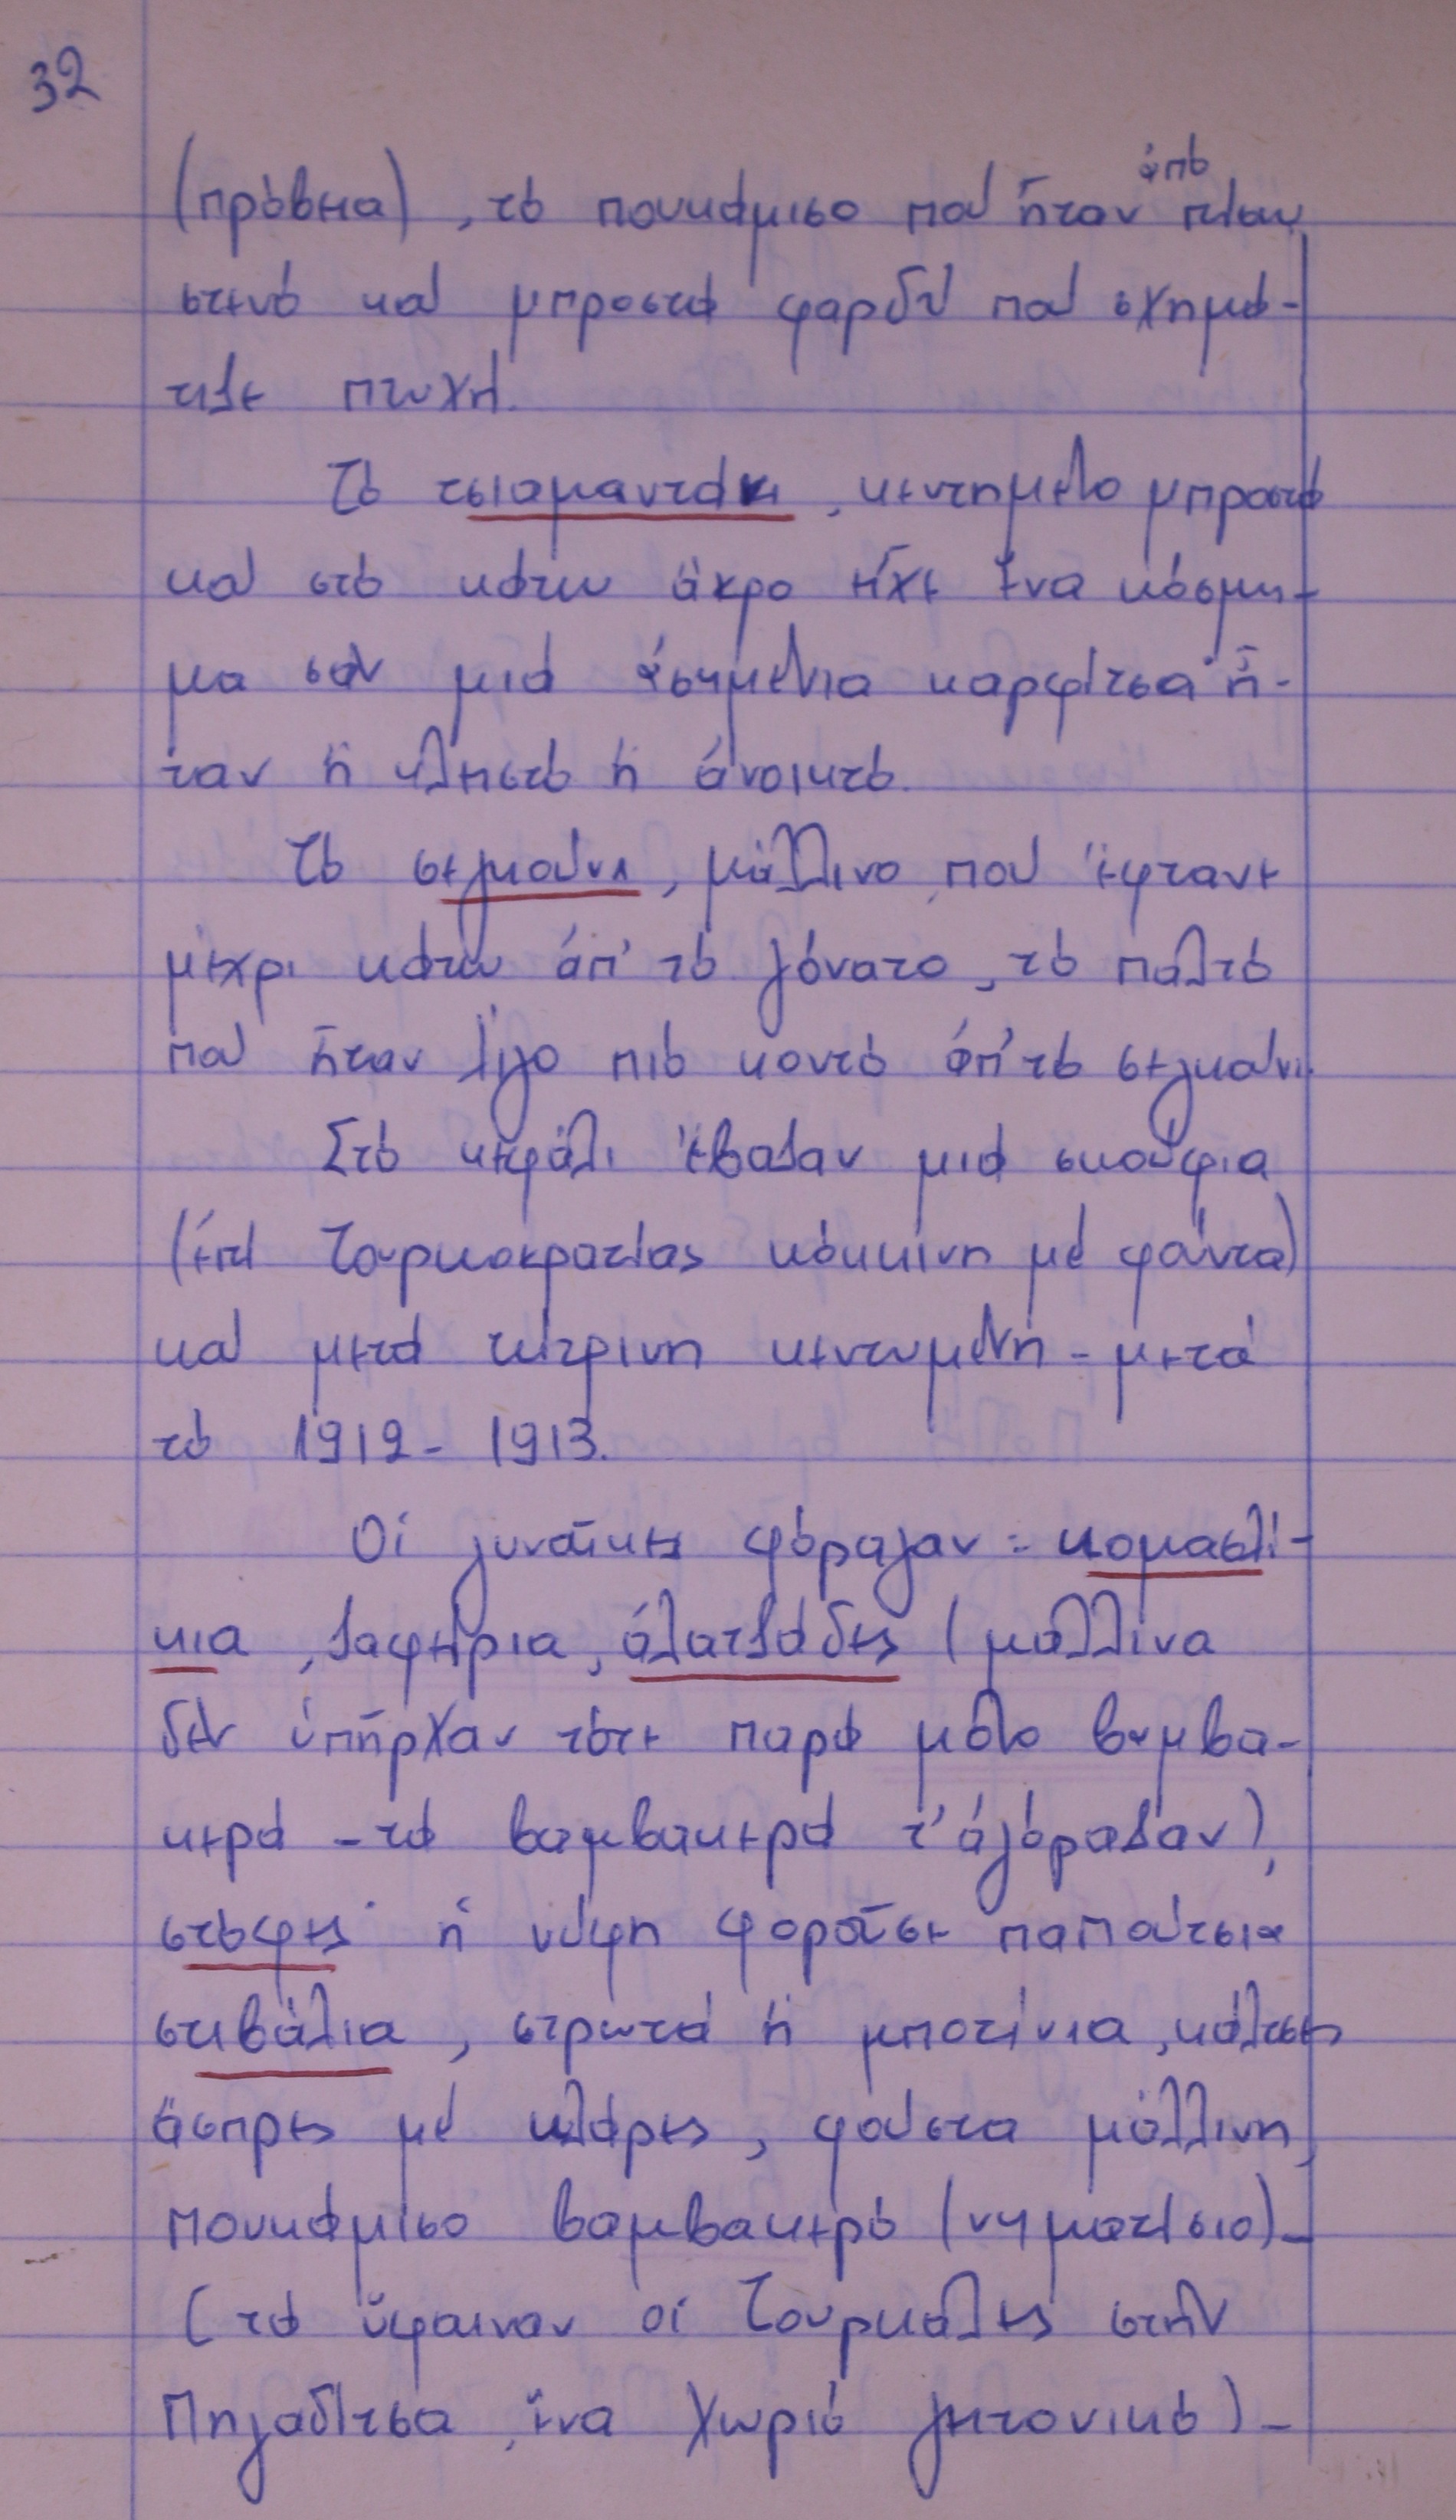 32
(πρόβεια), τό πουκάμισο πού ἦταν ἀπό πίσω
στενό καί μπροστά φαρδύ πού σχημά-
τιζε πτυχή.
Τό τσιαμαντάκι, κεντημένο μπροστά
καί στό κάτω ἄκρο εἶχε ἕνα κόσμη-
μα σάν μιά ἀσημένια καρφίτσα· ἦ-
ταν ἤ κλειστό ἤ ἀνοικτό.
Τό σεγκούνι, μάλλινο που ἔφτανε
μέχρι κάτω ἀπ' τό γόνατο, τό παλτό
πού ἦταν λίγο πιό κοντό ἀπ' τό σεγκούνι.
Στό κεφάλι ἔβαζαν μιά σκούφια
(ἐπί Τουρκοκρατίας κόκκινη μέ φούντα)
καί μετά κίτρινη κεντημένη - μετά
τό 1912 - 1913.
Οἱ γυναῖκες φόραγαν: κομασλί-
κια, ζαφείρια, ἀλατζάδες (μάλλινα
δέν ὑπῆρχαν τότε παρά μόνο βαμβα-
κερά - τά βαμβακερά τ' ἀγόραζαν),
στόφες· ἡ νύφη φοροῦσε παπούτσια
στιβάλια, στρωτά ἤ μποτίνια, κάλτσες
ἄσπρες μέ κλάρες, φούστα μάλλινη,
πουκάμισο βαμβακερό (νηματίσιο)-
(τά ὕφαιναν οἱ Τουρκάλες στήν
Πηγαδίτσα, ἕνα χωριό γειτονικό) -